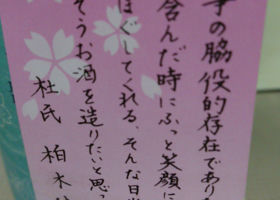 事の脇役的存在であり
含んだ時にふっと笑顔に
ほぐしてくれる、そんな日
そうお酒を造りたいと思っ
杜氏 柏木